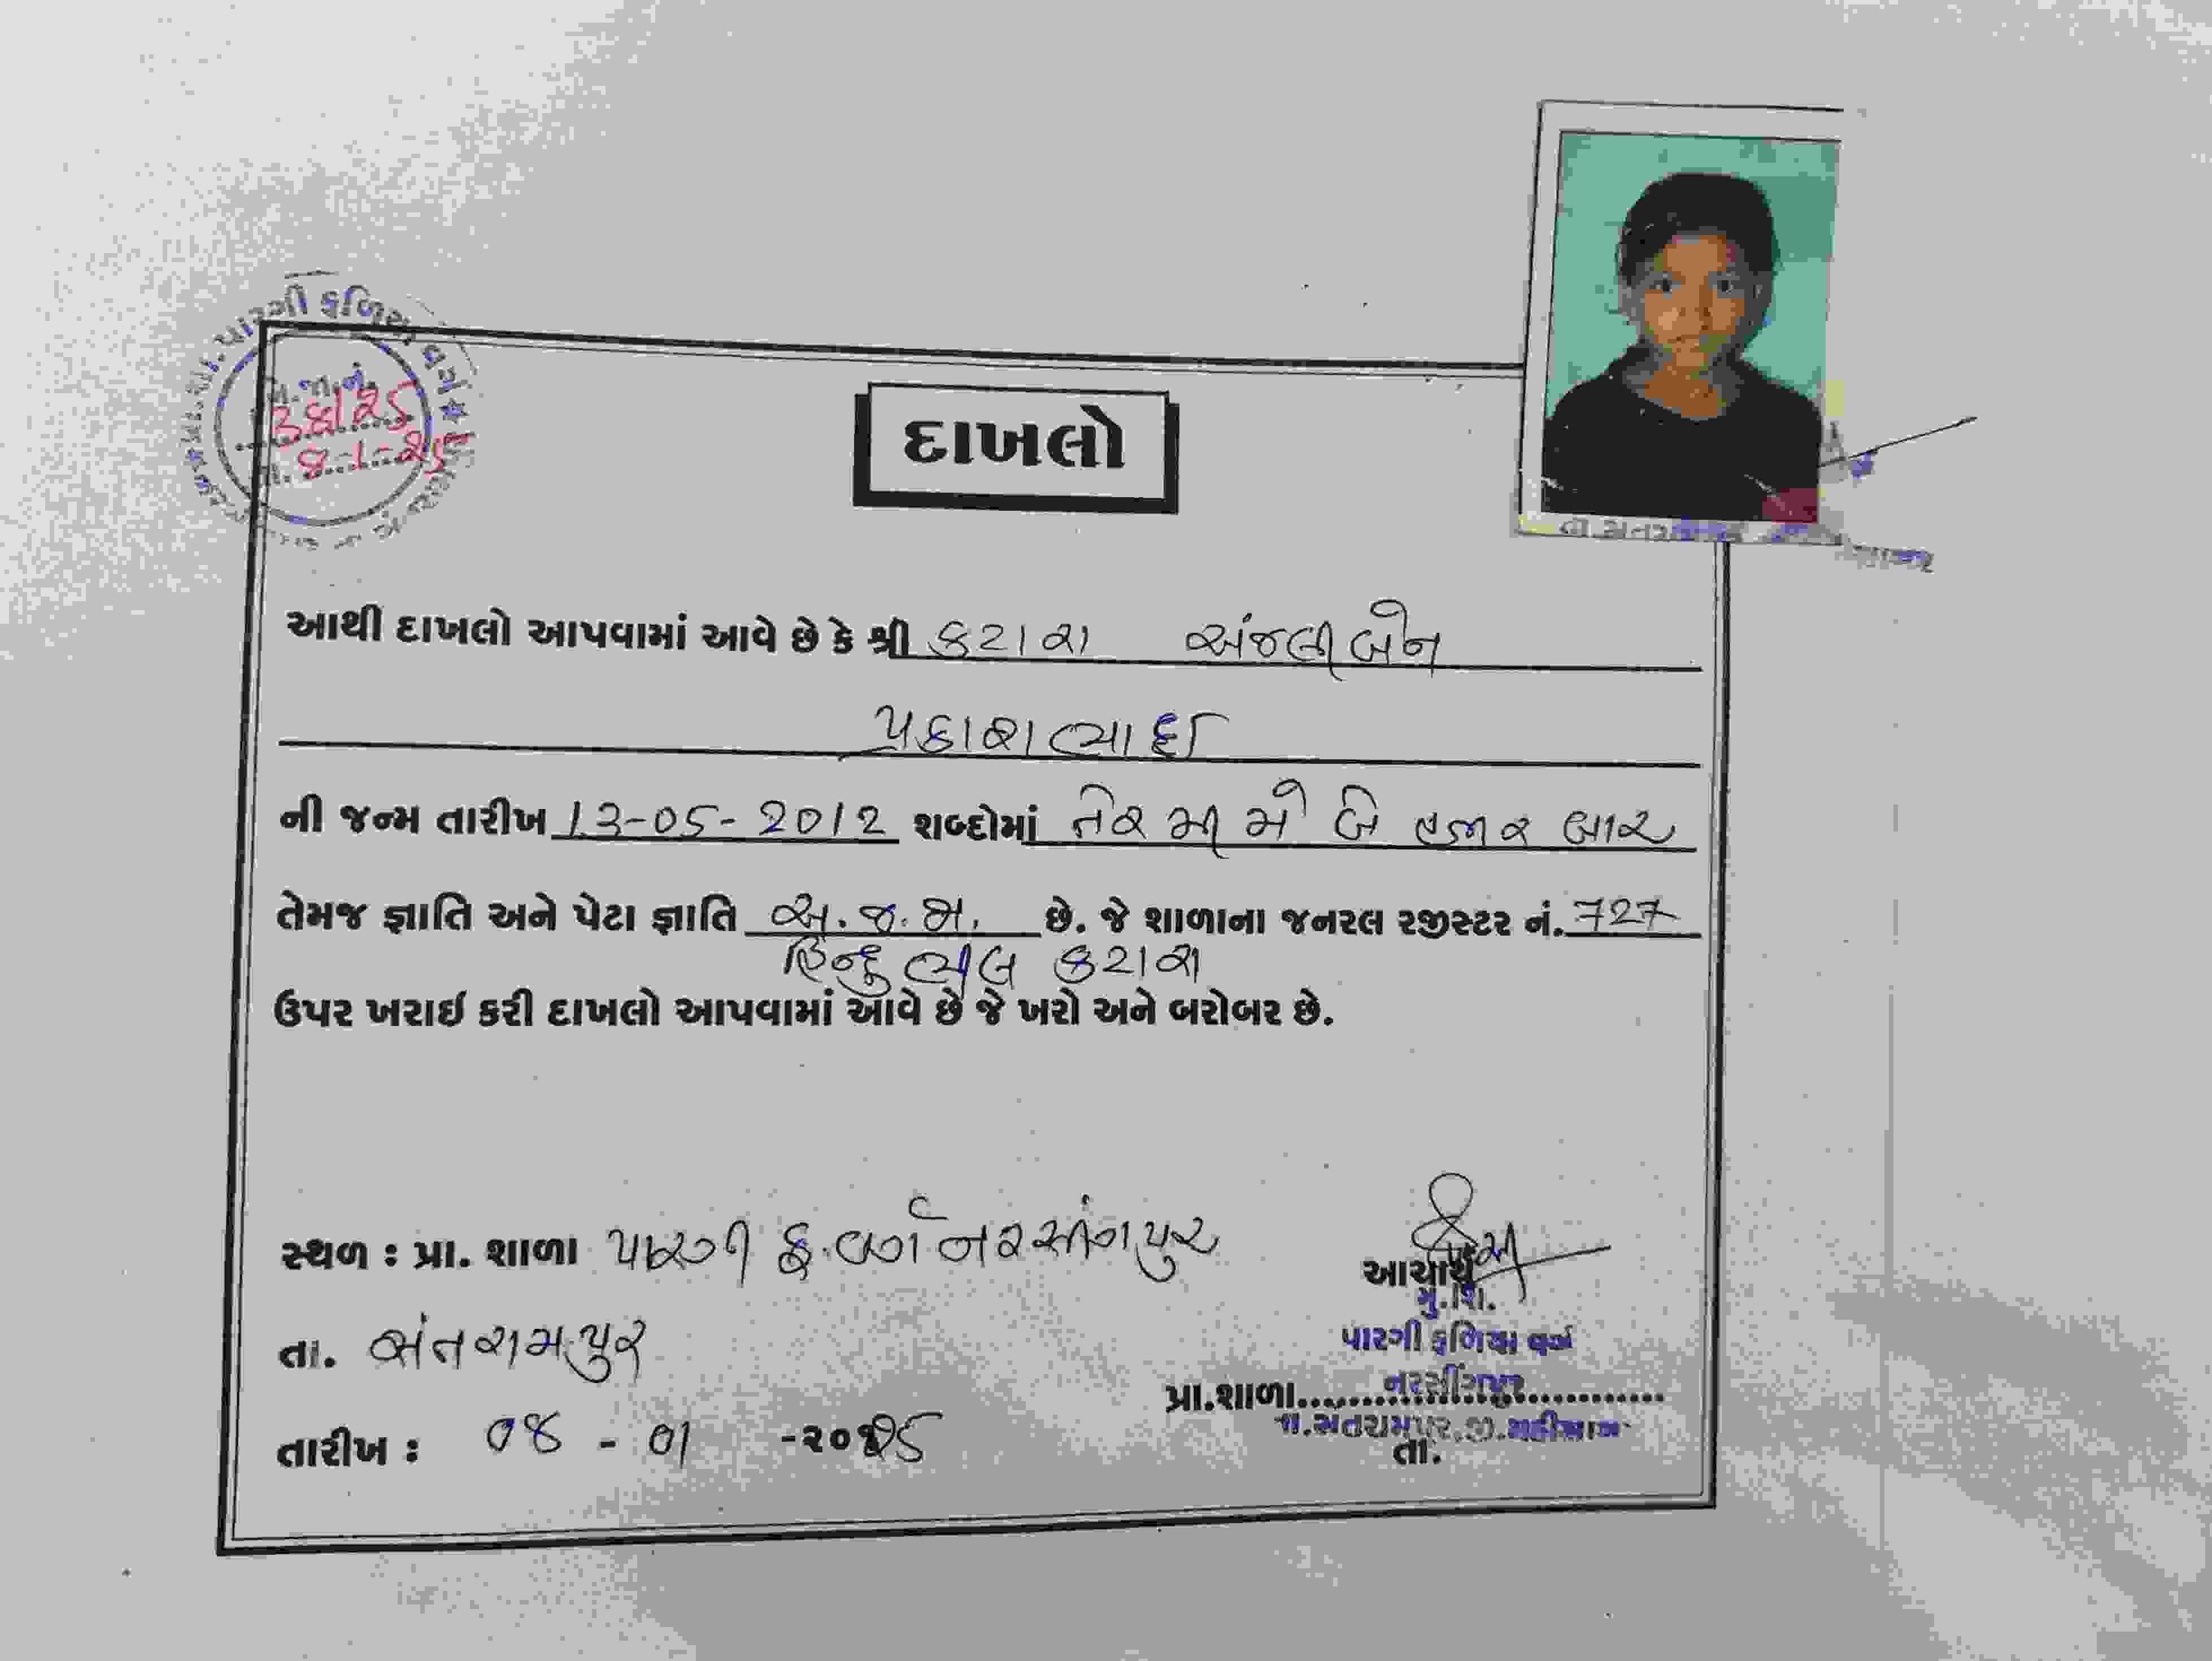 પારગી ફળિયા વર્ગ
જા.નં.
8-1-25
દાખલો
આથી દાખલો આપવામાં આવે છે કે શ્રી કટારા અંજલીબેન
પ્રકાશભાઈ
ની જન્મ તારીખ 13-05-2012 શબ્દોમાં તેર મી મે બે હજાર બાર
તેમજ જ્ઞાતિ અને પેટા જ્ઞાતિ અ.જ.જા. છે. જે શાળાના જનરલ રજીસ્ટર નં. 727
હિન્દુ ભીલ કટારા
ઉપર ખરાઈ કરી દાખલો આપવામાં આવે છે જે ખરો અને બરોબર છે.
સ્થળ : પ્રા. શાળા પારગી ફ. વર્ગ નરસીંગપુર
આચાર્ય
મુ.શિ.
તા. સંતરામપુર
પારગી ફળિયા વર્ગ
નરસીંગપુર
પ્રા.શાળા
તા.સંતરામપુર,જી.મહીસાગર
તારીખ : 08 - 01 -૨૦25
તા.